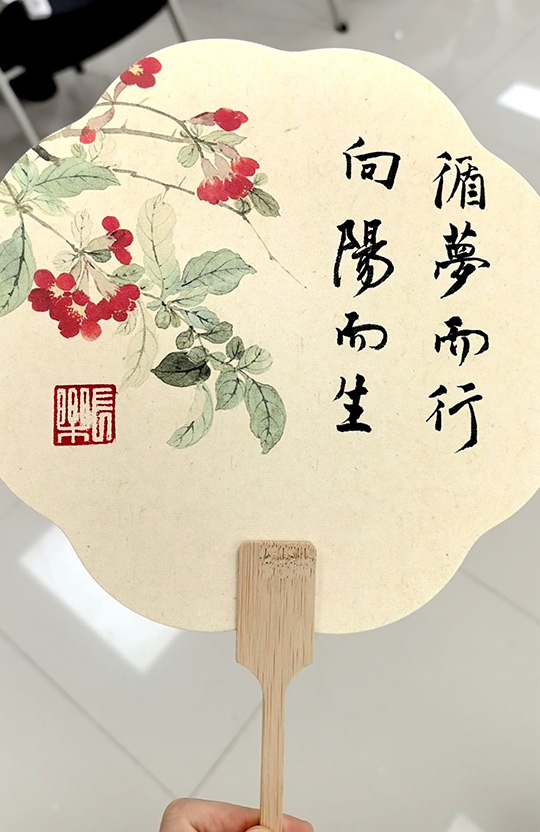 循夢而行
向陽而生
長樂